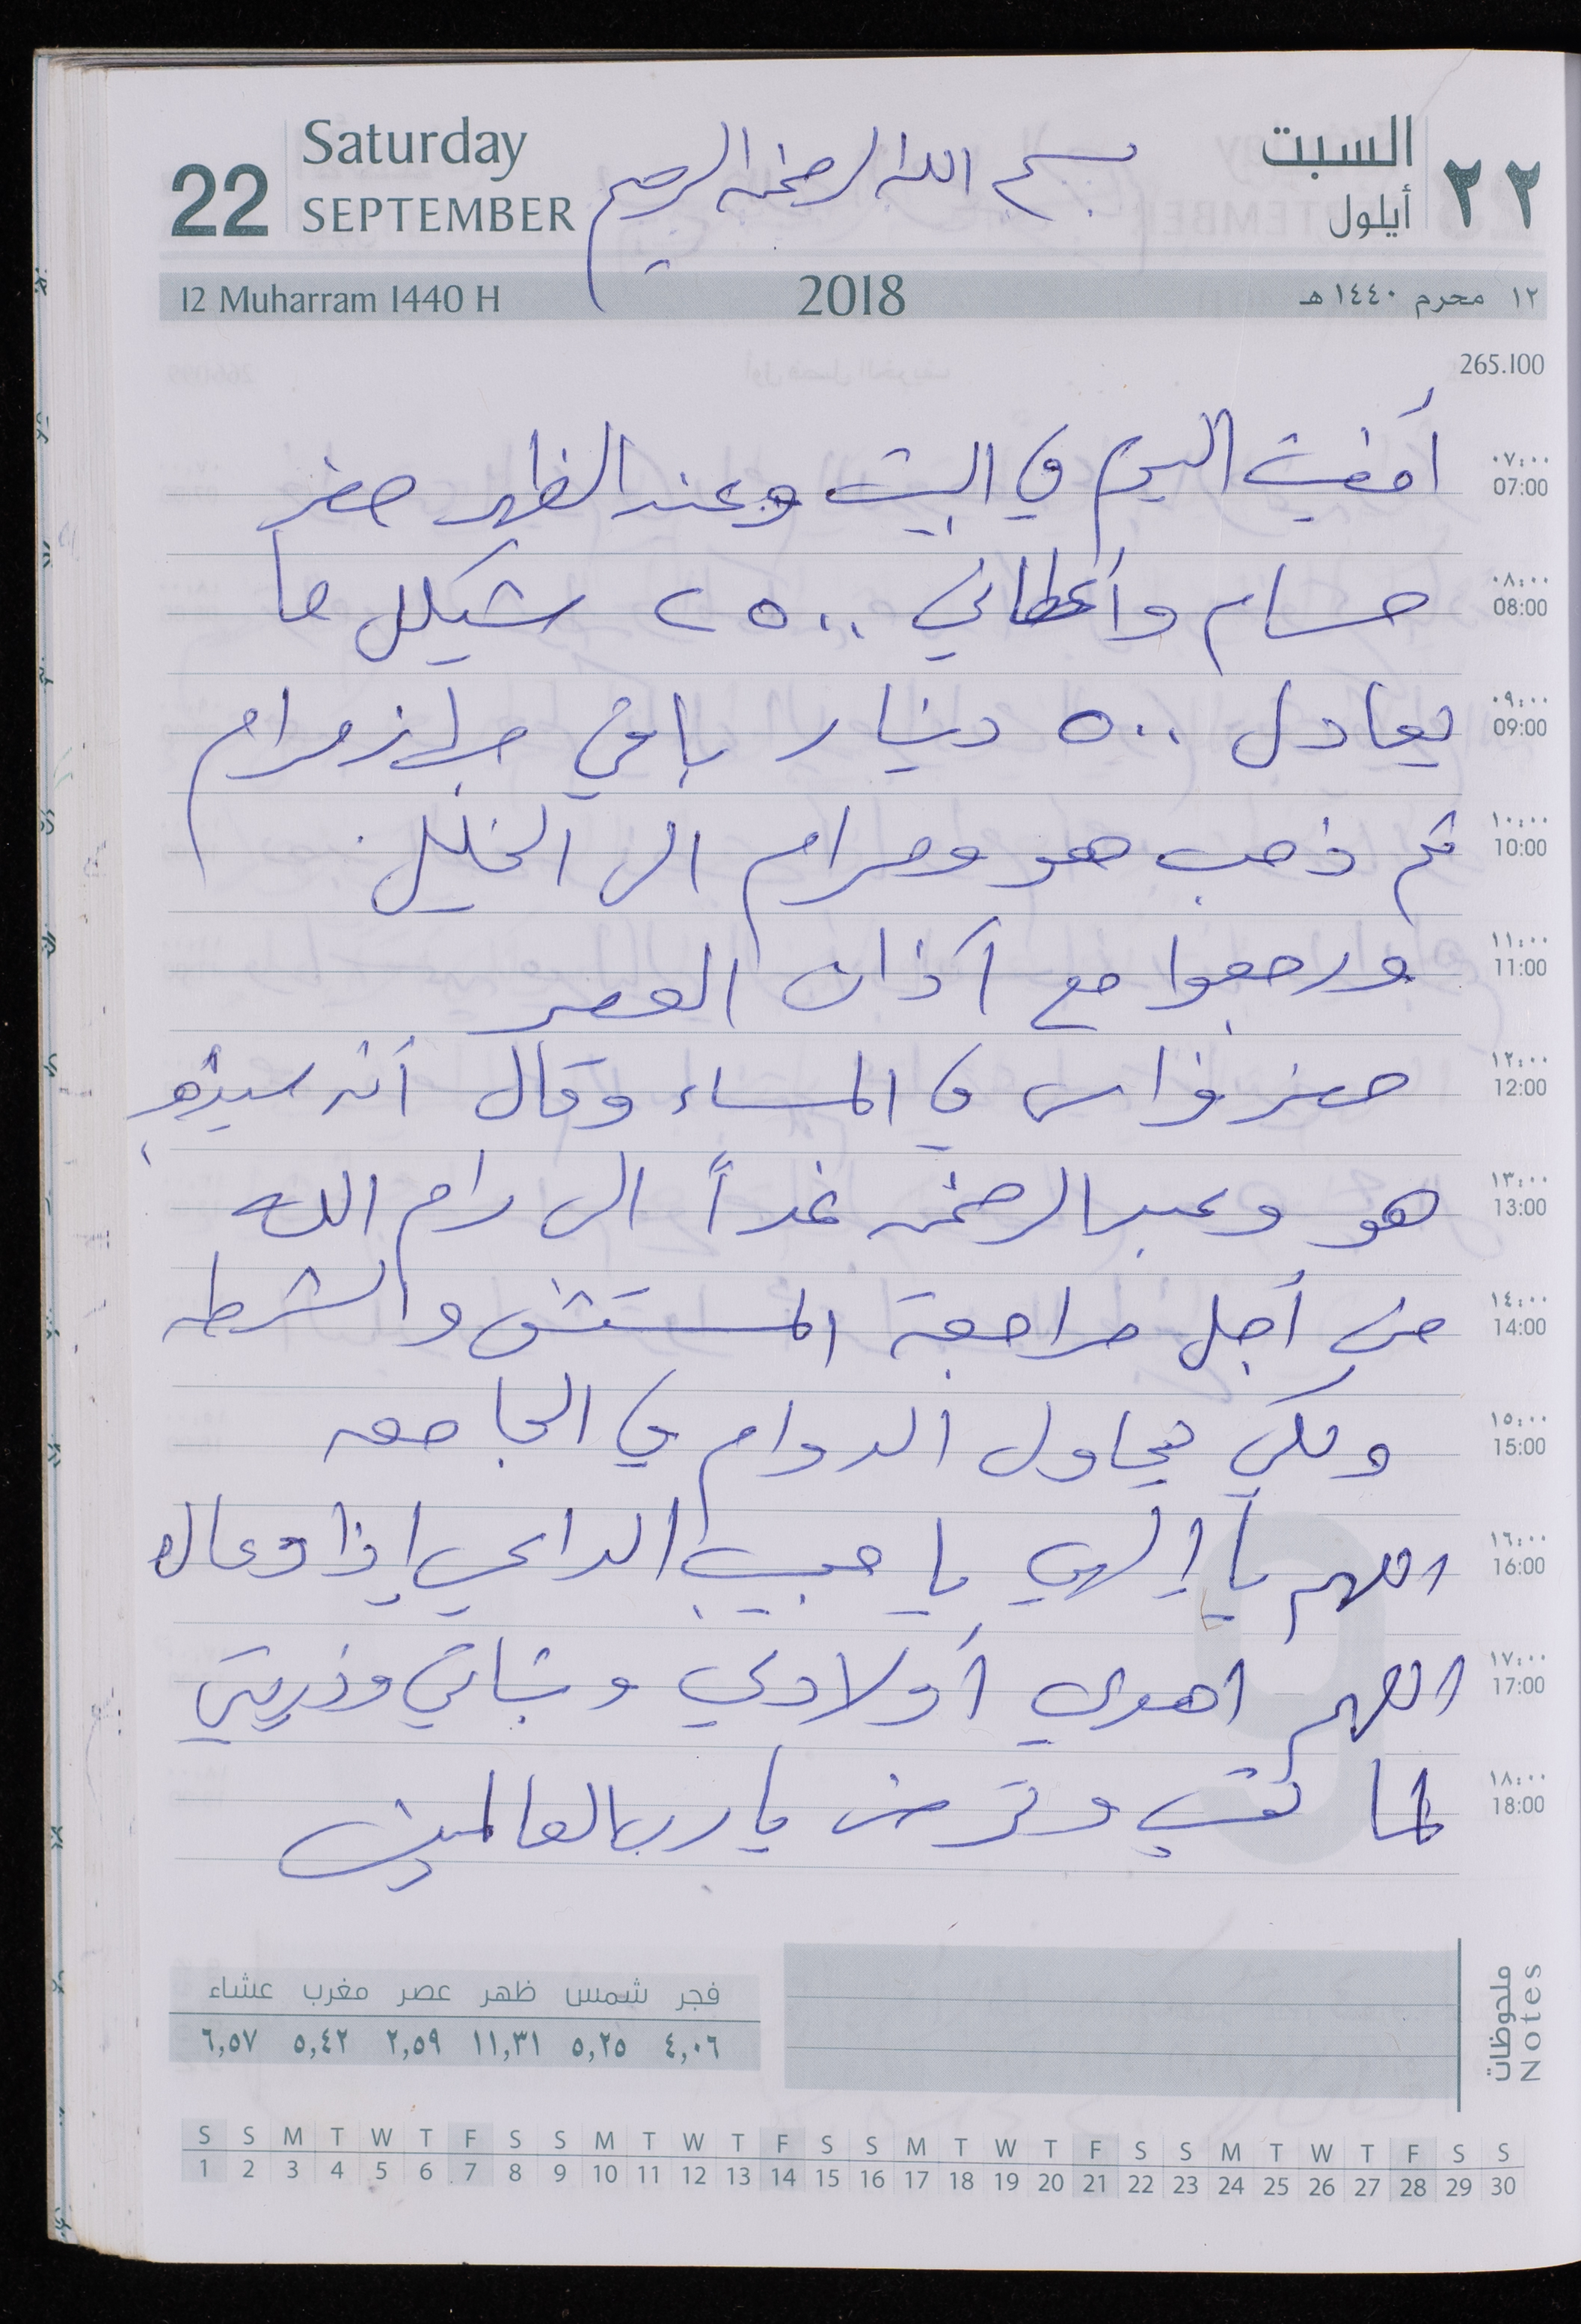 السبت
أيلول
٢٢
Saturday
SEPTEMBER
22
بسم الله الرحمن الرحيم
١٢ محرم ١٤٤٠ هـ
2018
12 Muharram 1440 H
265.100
٠٧:٠٠
07:00
أمضيت اليوم في البيت وعند الظهر حضر
٠٨:٠٠
08:00
حسام وأعطاني ٢٥٠٠ شيكل ما
٠٩:٠٠
09:00
يعادل ٥٠٠ دينار باقي جهاز مرام
١٠:٠٠
10:00
ثم ذهب هو ومرام الى الخليل.
١١:٠٠
11:00
ورجعوا مع أذان العصر
١٢:٠٠
12:00
حضر فراس في المساء وقال أنه سيذهب
١٣:٠٠
13:00
هو وعبد الرحمن غداً الى رام الله
١٤:٠٠
14:00
من أجل مراجعة المستشفى والشرطه
١٥:٠٠
15:00
ولكي يحاول الدوام في الجامعه
١٦:٠٠
16:00
اللهم يا إلهي يا مجيب الداعي إذا دعاك
١٧:٠٠
17:00
اللهم اهدي أولادي وبناتي وذريتي
١٨:٠٠
18:00
لما تحب وترضى يا رب العالمين
ملحوظات
Notes
فجر شمس ظهر عصر مغرب عشاء
٤,٠٦ ٥,٢٥ ١١,٣١ ٢,٥٩ ٥,٤٢ ٦,٥٧
S S M T W T F S S M T W T F S S M T W T F S S M T W T F S S
1 2 3 4 5 6 7 8 9 10 11 12 13 14 15 16 17 18 19 20 21 22 23 24 25 26 27 28 29 30